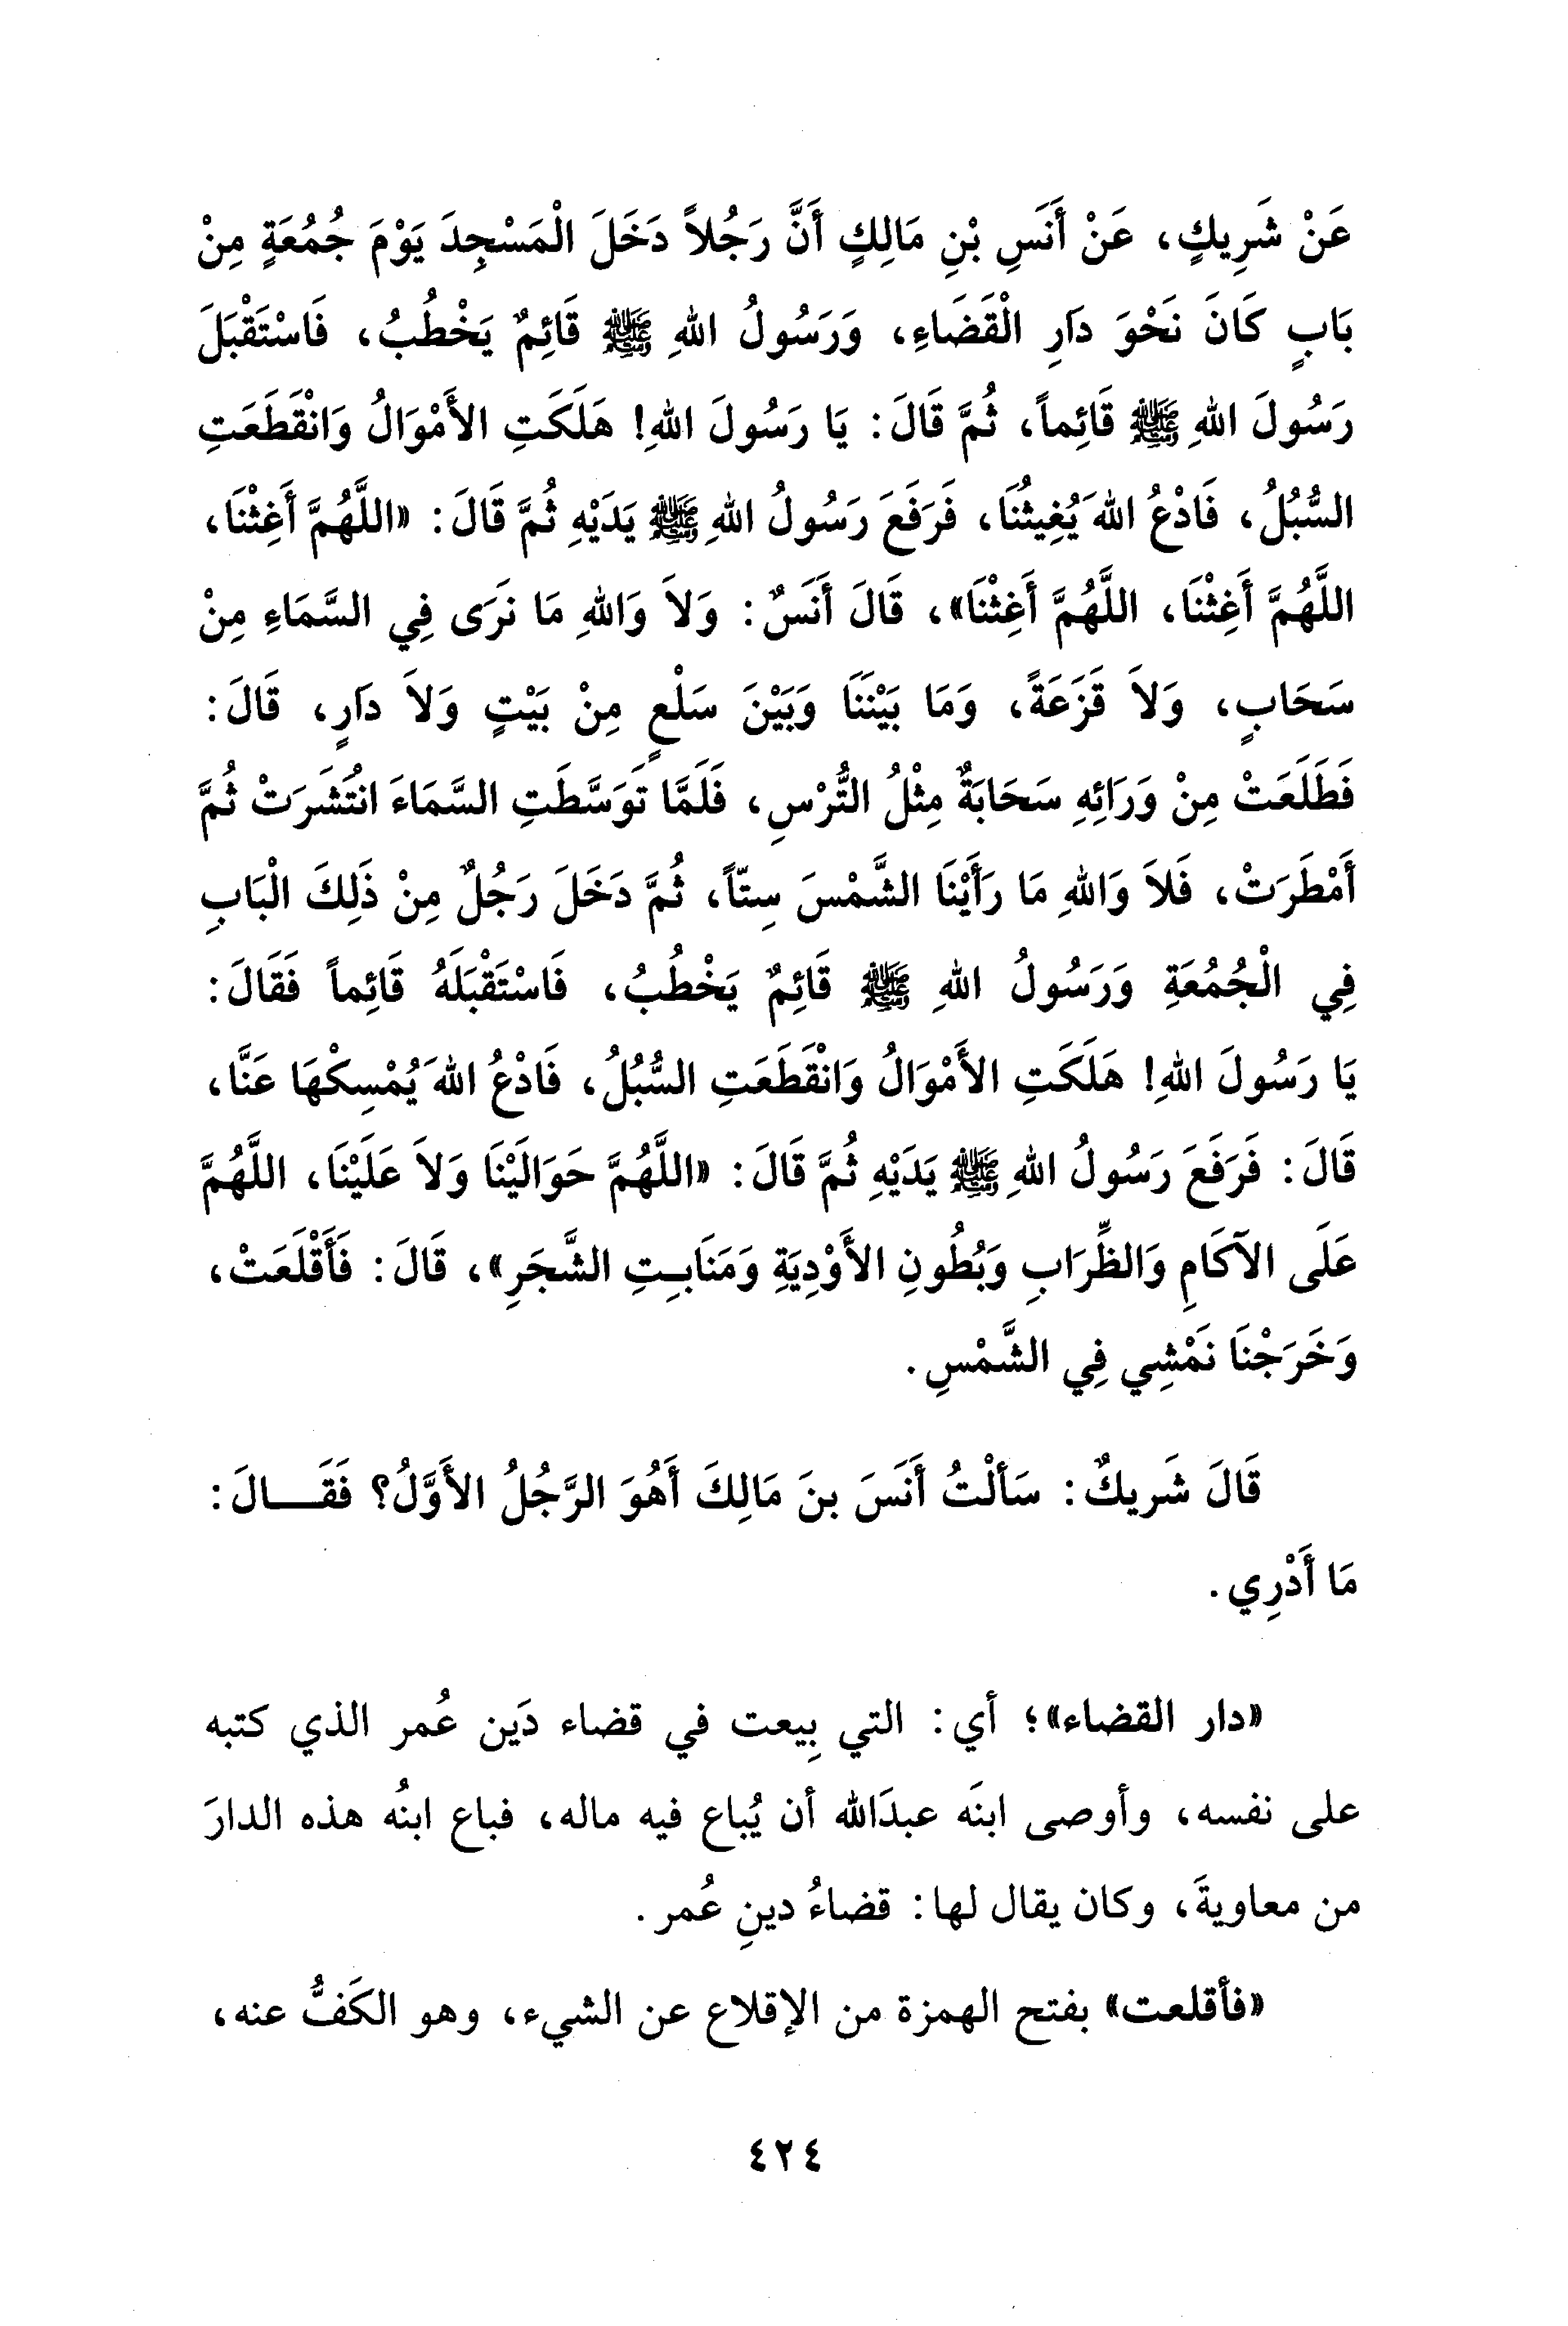 عَنْ شَرِيكٍ، عَنْ أَنَسِ بْنِ مَالِكٍ أَنَّ رَجُلاً دَخَلَ الْمَسْجِدَ يَوْمَ جُمُعَةٍ مِنْ
بَابٍ كَانَ نَحْوَ دَارِ الْقَضَاءِ، وَرَسُولُ اللهِ ﷺ قَائِمٌ يَخْطُبُ، فَاسْتَقْبَلَ
رَسُولَ اللهِ ﷺ قَائِماً، ثُمَّ قَالَ: يَا رَسُولَ اللهِ! هَلَكَتِ الأَمْوَالُ وَانْقَطَعَتِ
السُّبُلُ، فَادْعُ اللهَ يُغِيثُنَا، فَرَفَعَ رَسُولُ اللهِ ﷺ يَدَيْهِ ثُمَّ قَالَ: «اللَّهُمَّ أَغِثْنَا،
اللَّهُمَّ أَغِثْنَا، اللَّهُمَّ أَغِثْنَا»، قَالَ أَنَسٌ: وَلاَ وَاللهِ مَا نَرَى فِي السَّمَاءِ مِنْ
سَحَابٍ، وَلاَ قَزَعَةً، وَمَا بَيْنَنَا وَبَيْنَ سَلْعٍ مِنْ بَيْتٍ وَلاَ دَارٍ، قَالَ:
فَطَلَعَتْ مِنْ وَرَائِهِ سَحَابَةٌ مِثْلُ التُّرْسِ، فَلَمَّا تَوَسَّطَتِ السَّمَاءَ انْتَشَرَتْ ثُمَّ
أَمْطَرَتْ، فَلاَ وَاللهِ مَا رَأَيْنَا الشَّمْسَ سِتّاً، ثُمَّ دَخَلَ رَجُلٌ مِنْ ذَلِكَ الْبَابِ
فِي الْجُمُعَةِ وَرَسُولُ اللهِ ﷺ قَائِمٌ يَخْطُبُ، فَاسْتَقْبَلَهُ قَائِماً فَقَالَ:
يَا رَسُولَ اللهِ! هَلَكَتِ الأَمْوَالُ وَانْقَطَعَتِ السُّبُلُ، فَادْعُ اللهَ يُمْسِكْهَا عَنَّا،
قَالَ: فَرَفَعَ رَسُولُ اللهِ ﷺ يَدَيْهِ ثُمَّ قَالَ: «اللَّهُمَّ حَوَالَيْنَا وَلاَ عَلَيْنَا، اللَّهُمَّ
عَلَى الآكَامِ وَالظِّرَابِ وَبُطُونِ الأَوْدِيَةِ وَمَنَابِتِ الشَّجَرِ»، قَالَ: فَأَقْلَعَتْ،
وَخَرَجْنَا نَمْشِي فِي الشَّمْسِ.
قَالَ شَرِيكٌ: سَأَلْتُ أَنَسَ بنَ مَالِكَ أَهُوَ الرَّجُلُ الأَوَّلُ؟ فَقَــالَ:
مَا أَدْرِي.
«دار القضاء»؛ أي: التي بِيعت في قضاء دَين عُمر الذي كتبه
على نفسه، وأوصى ابنَه عبدَالله أن يُباع فيه ماله، فباع ابنُه هذه الدارَ
من معاويةَ، وكان يقال لها: قضاءُ دينِ عُمر.
«فأقلعت» بفتح الهمزة من الإقلاع عن الشيء، وهو الكَفُّ عنه،
٤٢٤